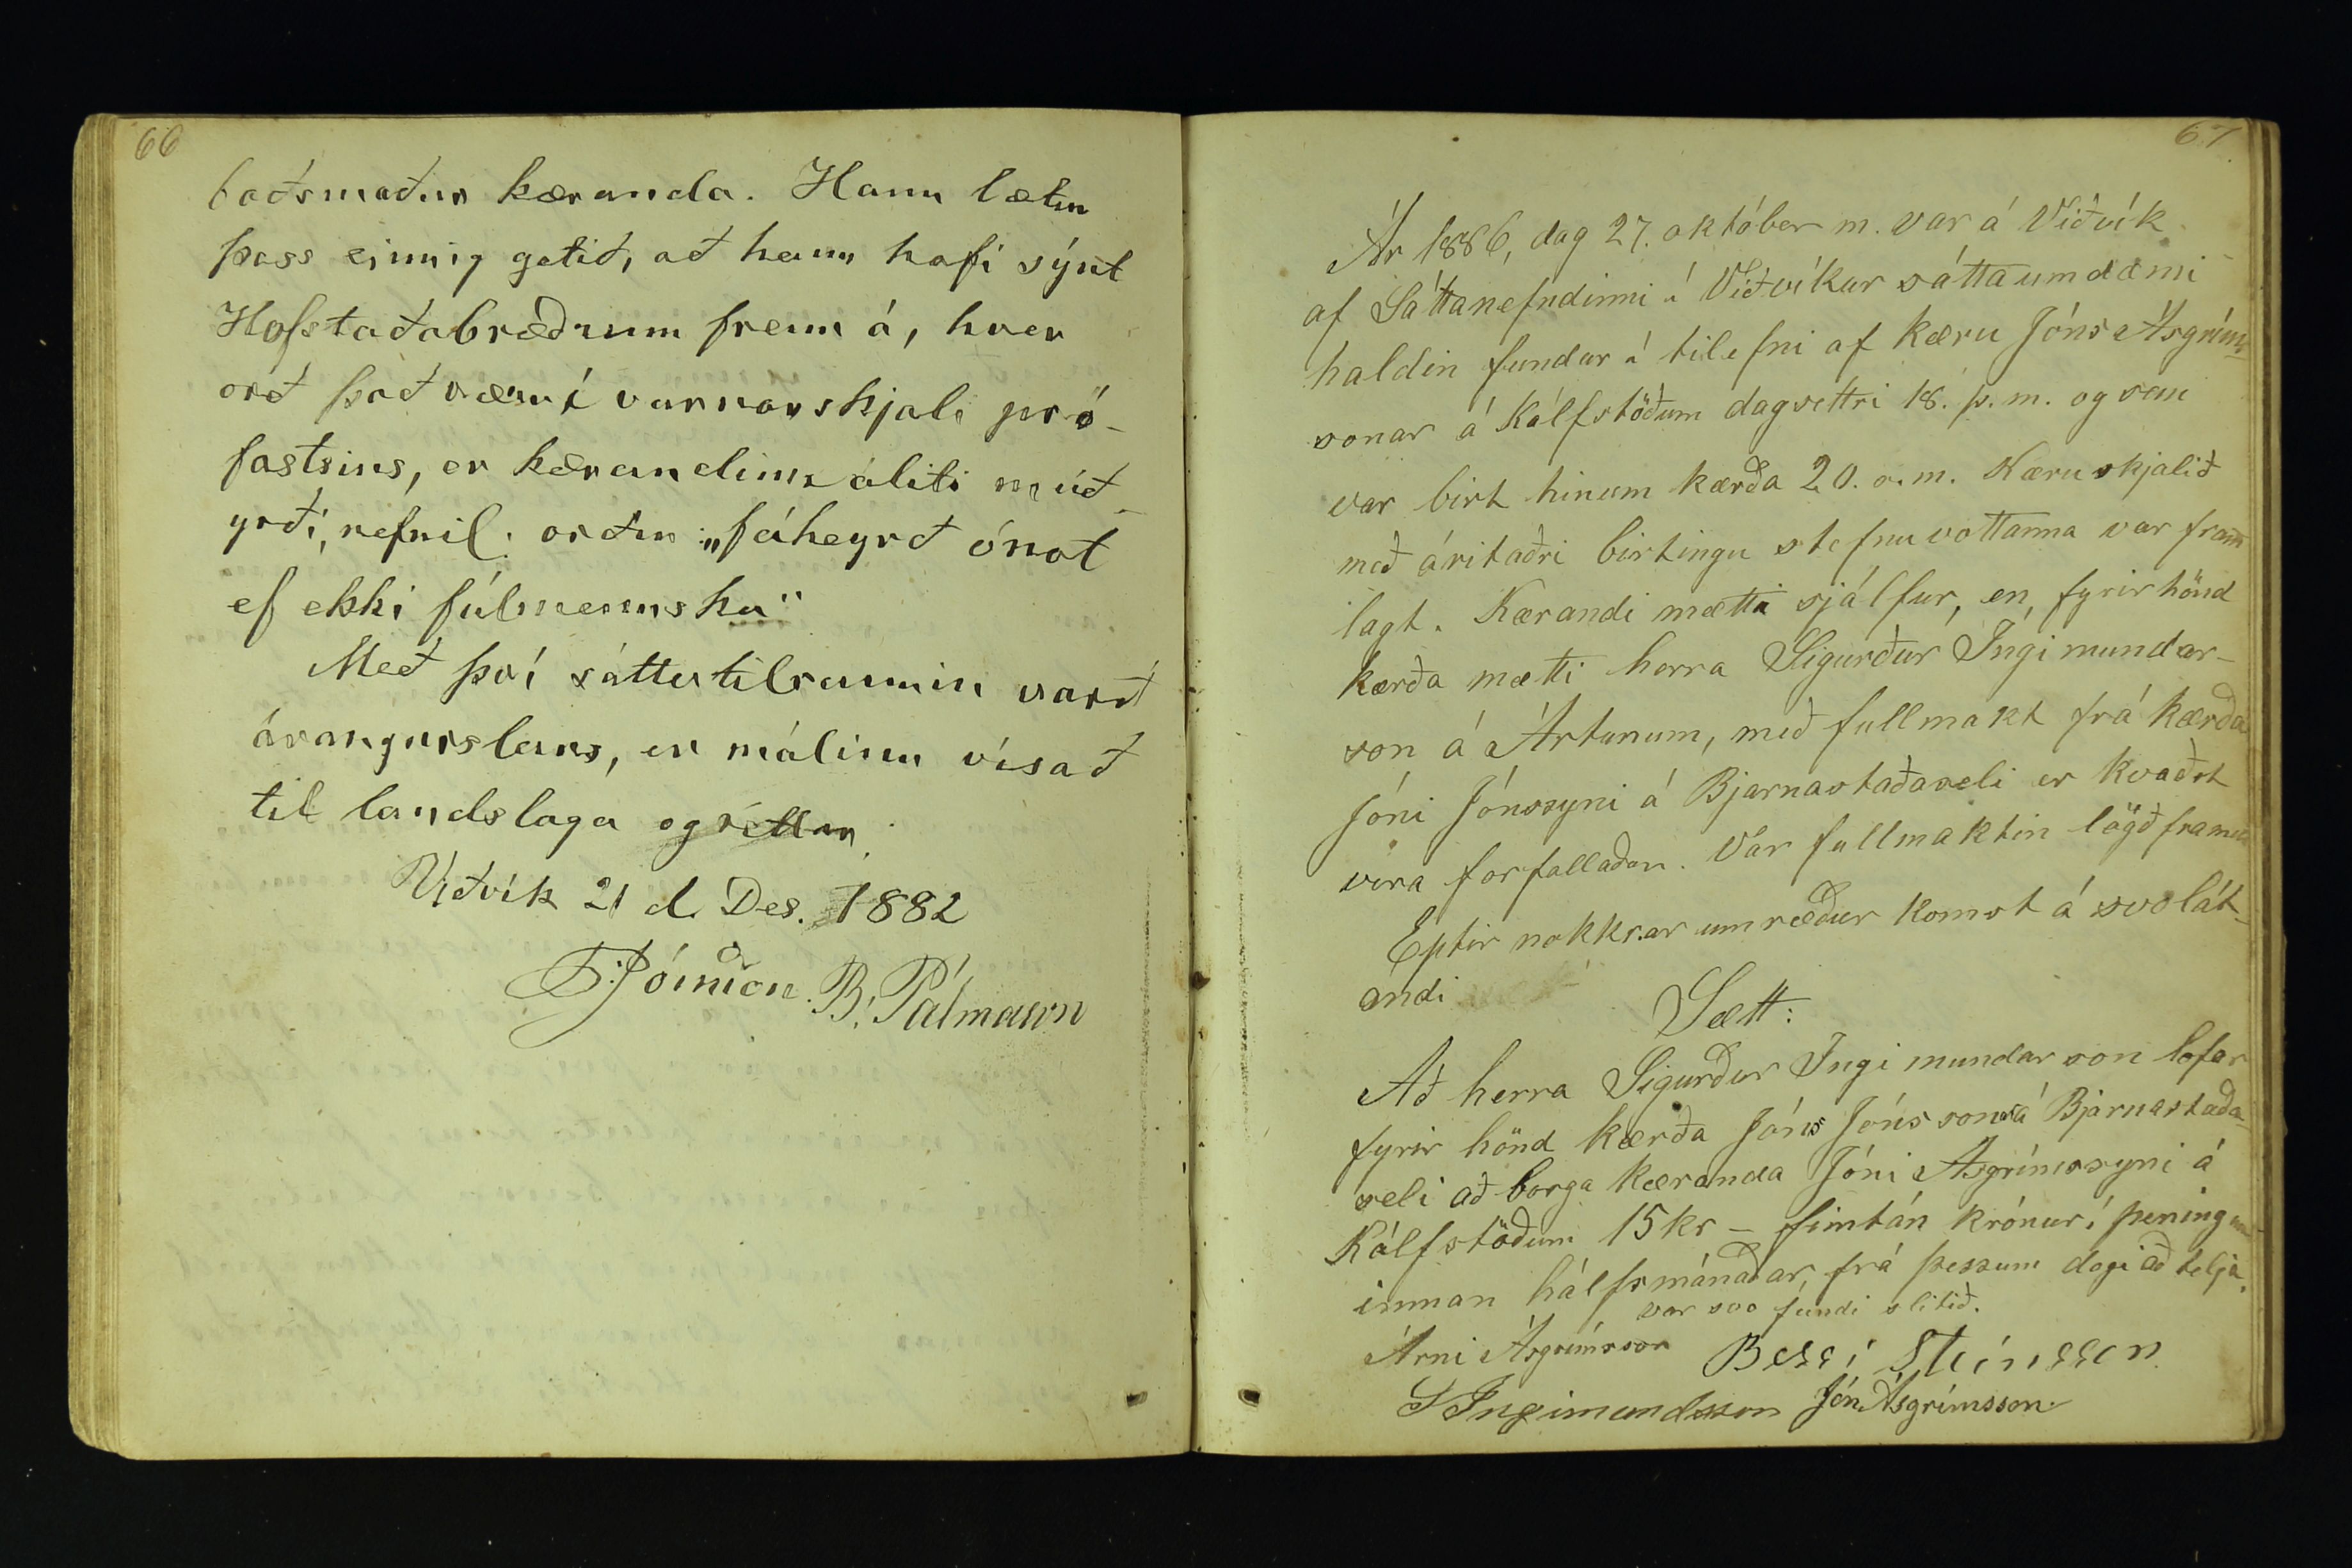 66
boðsmaður kæranda. Hann lætur
þess einnig getið, að hann hafi sýnt
Hofstaðabræðrum fram á, hver
orð það væru í varnarskjali pró-
fastsins, er kærandinn áliti meið-
yrði, nefnil. orðin: „fáheyrð ónot
ef ekki fúlmennska"
Með því sáttatilraunin varð
árangurslaus, er málinu vísað
til landslaga og réttar.
Viðvík 21 d. Des. 1882
B. Pálmason
67
Ár 1886, dag 27. október m. var á Viðvík
af Sáttanefndinni í Viðvíkur sáttaumdæmi
haldin fundur í tilefni af kæru Jóns Ásgríms-
sonar á Kálfstöðum dagsettri 18. þ. m. og sem
var birt hinum kærða 20. s. m. Kæruskjalið
með áritaðri birtingu stefnuvottanna var fram
lagt. Kærandi mætti sjálfur, en, fyrir hönd
kærða mætti herra Sigurður Ingimundar-
son á Ártunum, með fullmakt frá kærða
Jóni Jónssyni á Bjarnastaðaseli er kvaðst
vera forfallaður. Var fullmaktin lögð fram
Eptir nokkrar umræður komst á svolát-
andi
Sætt:
Að herra Sigurður Ingimundarson lofar
fyrir hönd kærða Jóns Jónssonar á Bjarnastaða-
seli að borga kæranda Jóni Ásgrímssyni á
Kálfstöðum 15 kr – fimtán krónur í peningum
innan hálfsmánaðar, frá þessum degi að telja.
var svo fundi slitið.
Árni Ásgrímsson Bessi Steinsson
S Ingimundsson Jón Ásgrímsson